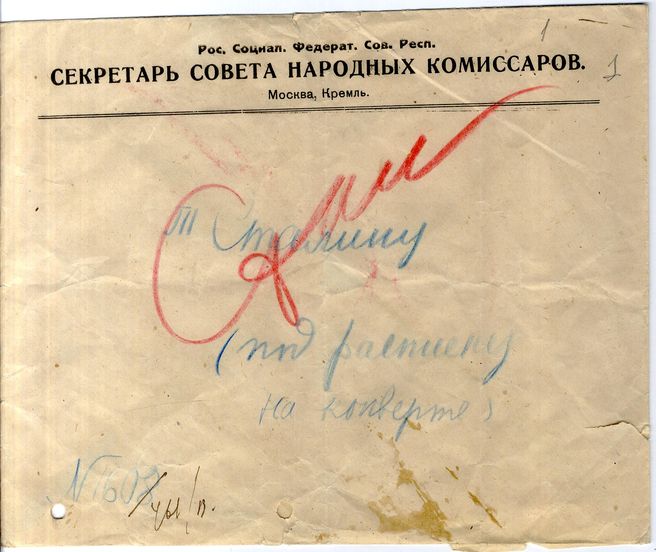 1
Рос. Социал. Федерат. Сов. Респ.
СЕКРЕТАРЬ СОВЕТА НАРОДНЫХ КОМИССАРОВ.
1
Москва, Кремль.
т Сталину
(под расписку
на конверте)